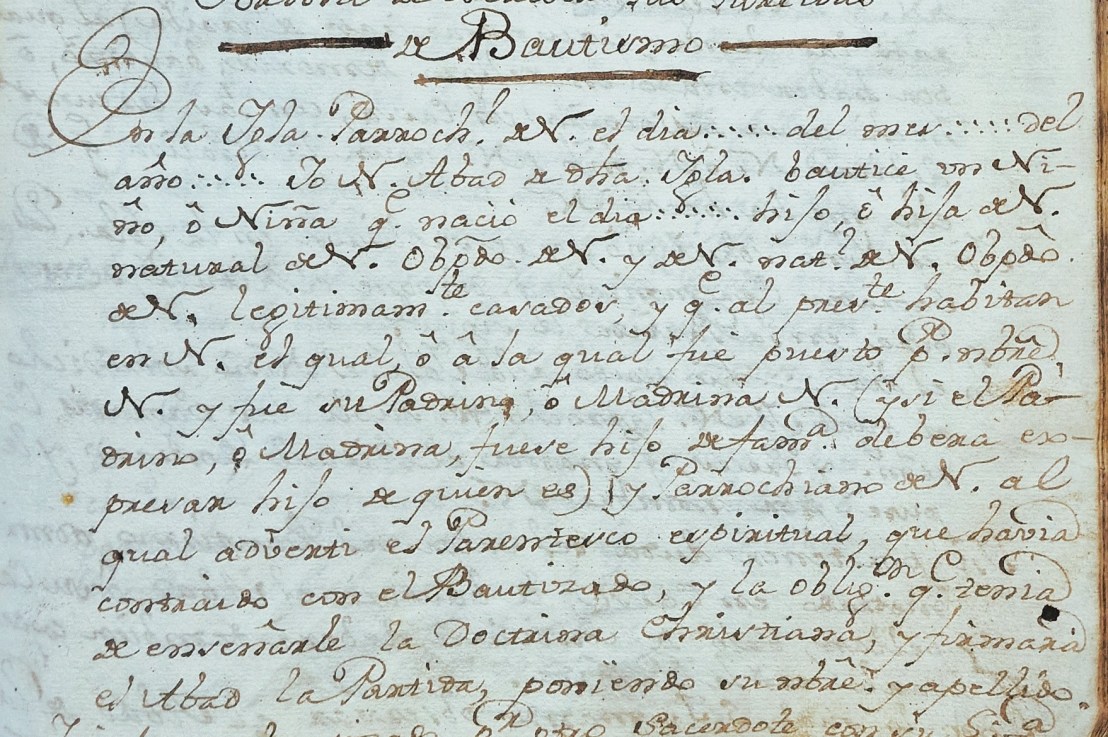 de Bautismo
En la Igla. Parroch.l de N. el dia ..... del mes ..... del
año ..... Yo N. Abad de dha. Igla. bauticé un Ni-
ño, ô Niña q.e nació el dia ..... hijo, ê hija de N.
natural de N. Obpdo. de N. y de N. nat.l de N. Obpdo.
de N. legitimam.te casados, y q.e al pres.te habitan
en N. el qual, ô â la qual fue puesto p.r nbre.
N. y fue su Padrino, ô Madrina N. (y si el Pa-
drino, ô Madrina, fuese hijo de fam.a deberá ex-
presar hijo de quien es) y Parrochiano de N. al
qual adverti el Parentesco espiritual, que havia
contraido con el Bautizado, y la oblig.on q.e tenia
de enseñarle la Doctrina Christiana, y firmará
el Abad la Partida, poniendo su nbre. y apellido.
p.r otro Sacerdote con su